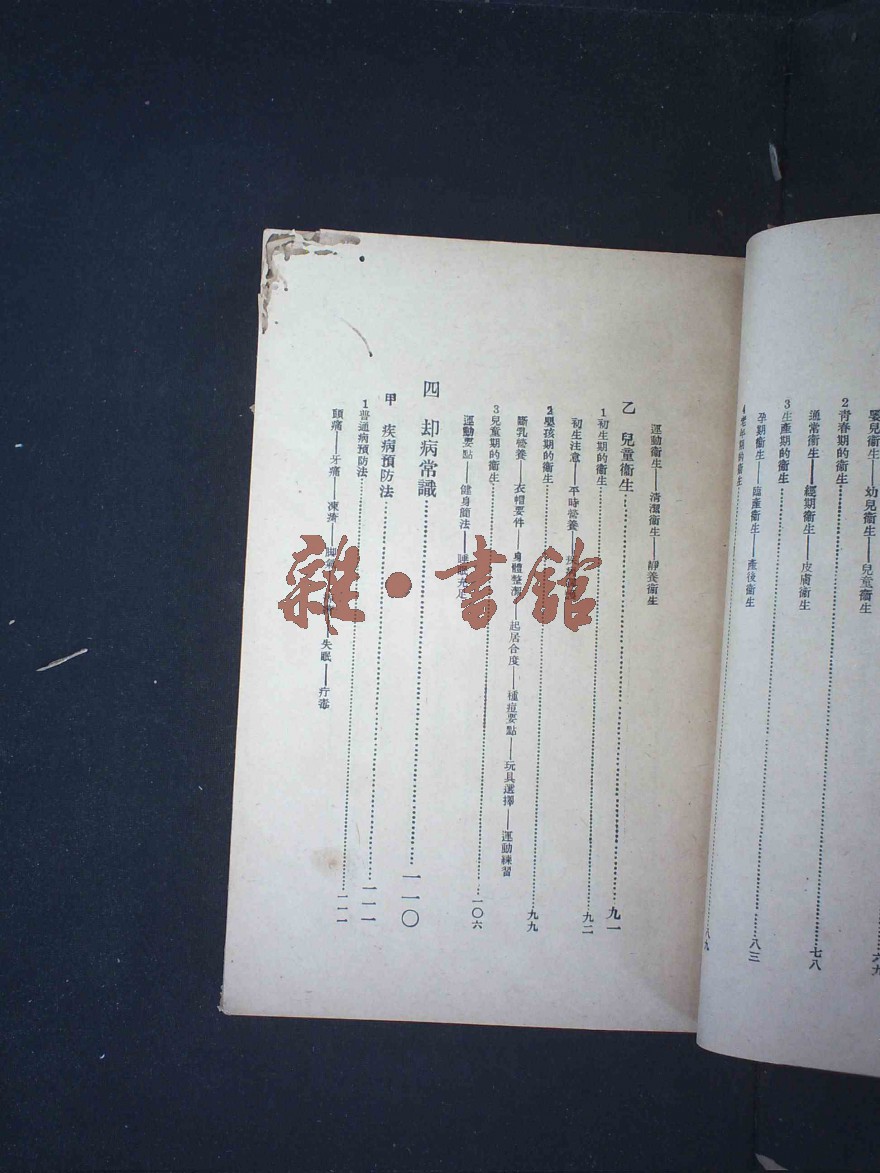 嬰兒衞生——幼兒衞生——兒童衞生
六九
2青春期的衞生……七八
通常衞生——經期衞生——皮膚衞生
3生產期的衞生……八三
孕期衞生——臨產衞生——產後衞生
4老年期的衞生……八九
運動衞生——清潔衞生——靜養衞生
乙 兒童衞生……九一
1初生期的衞生……九二
初生注意——平時營養——
2嬰孩期的衞生……九九
斷乳營養——衣帽要件——身體整潔——起居合度——種痘要點——玩具選擇——運動練習
3兒童期的衞生……一〇六
運動要點——健身簡法——睡眠充足
四 却病常識……一一〇
甲 疾病預防法……一一一
1普通病預防法……一一一
頭痛——牙痛——凍瘡——脚氣——失眠——疔毒
雜·書館